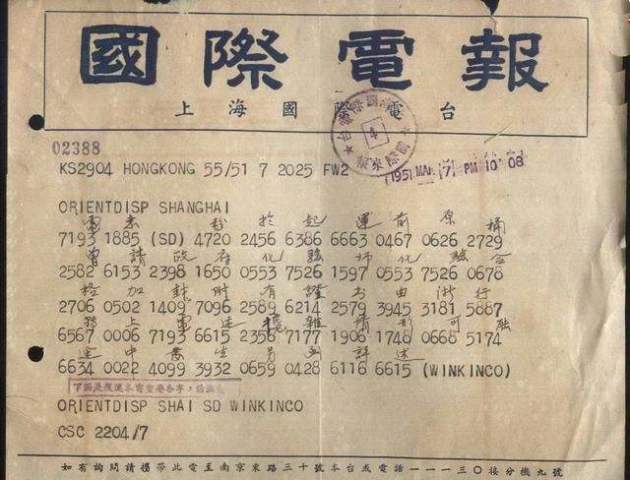 國際電報
上海國際電台
02388
4
KS2904 HONGKONG 55/51 7 2025 FW2
1951 MAR 7 PM 10 08
ORIENTDISP SHANGHAI
電悉 於起運前原桶
7193 1885 (SD) 4720 2456 6386 6663 0467 0626 2729
曾請政府化驗師化驗合
2582 6153 2398 1650 0553 7526 1597 0553 7526 0678
格加封 有證書由 行
2706 0502 1409 7096 2589 6214 2579 3945 3181 5887
上電述 雜情形可融
6567 0006 7193 6615 2356 7177 1906 1748 0668 5174
途中 生另函詳述
6634 0022 4099 3932 0659 0428 6116 6615 (WINKINCO)
ORIENTDISP SHAI SD WINKINCO
CSC 2204/7
如有詢問請攜帶此電至南京東路三十號本台或電話一一一三〇接分機九號